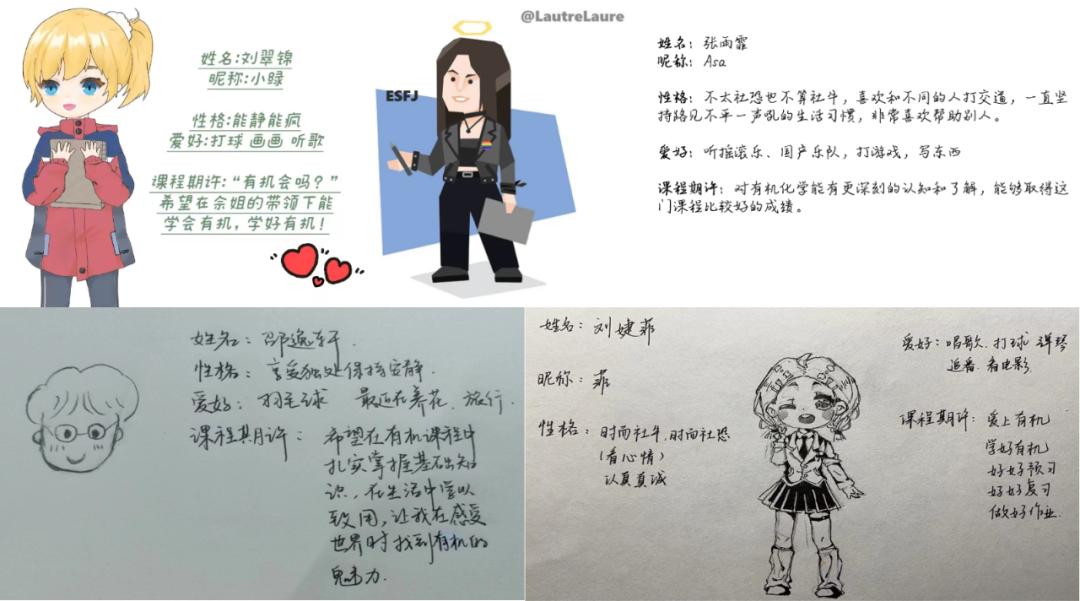 姓名:刘翠锦
昵称:小绿
性格:能静能疯
爱好:打球 画画 听歌
课程期许:“有机会吗?”
希望在余姐的带领下能
学会有机,学好有机!
@LautreLaure
ESFJ
姓名: 张雨霏
昵称: Asa
性格: 不太社恐也不算社牛,喜欢和不同的人打交道,一直坚
持路见不平一声吼的生活习惯,非常喜欢帮助别人。
爱好: 听摇滚乐、国产乐队,打游戏,写东西
课程期许: 对有机化学能有更深刻的认知和了解,能够取得这
门课程比较好的成绩。
姓名: 邵逸轩.
性格: 享受独处保持安静.
爱好: 羽毛球 最近在养花、旅行.
课程期许: 希望在有机课程中
扎实掌握基础知
识,在生活中学以
致用,让我在感受
世界时找到有机的
魅力.
姓名: 刘婕菲
昵称: 菲
性格: 时而社牛,时而社恐
(看心情)
认真真诚
爱好: 唱歌、打球 弹琴
追番、看电影
课程期许: 爱上有机
学好有机
好好预习
好好复习
做好作业.